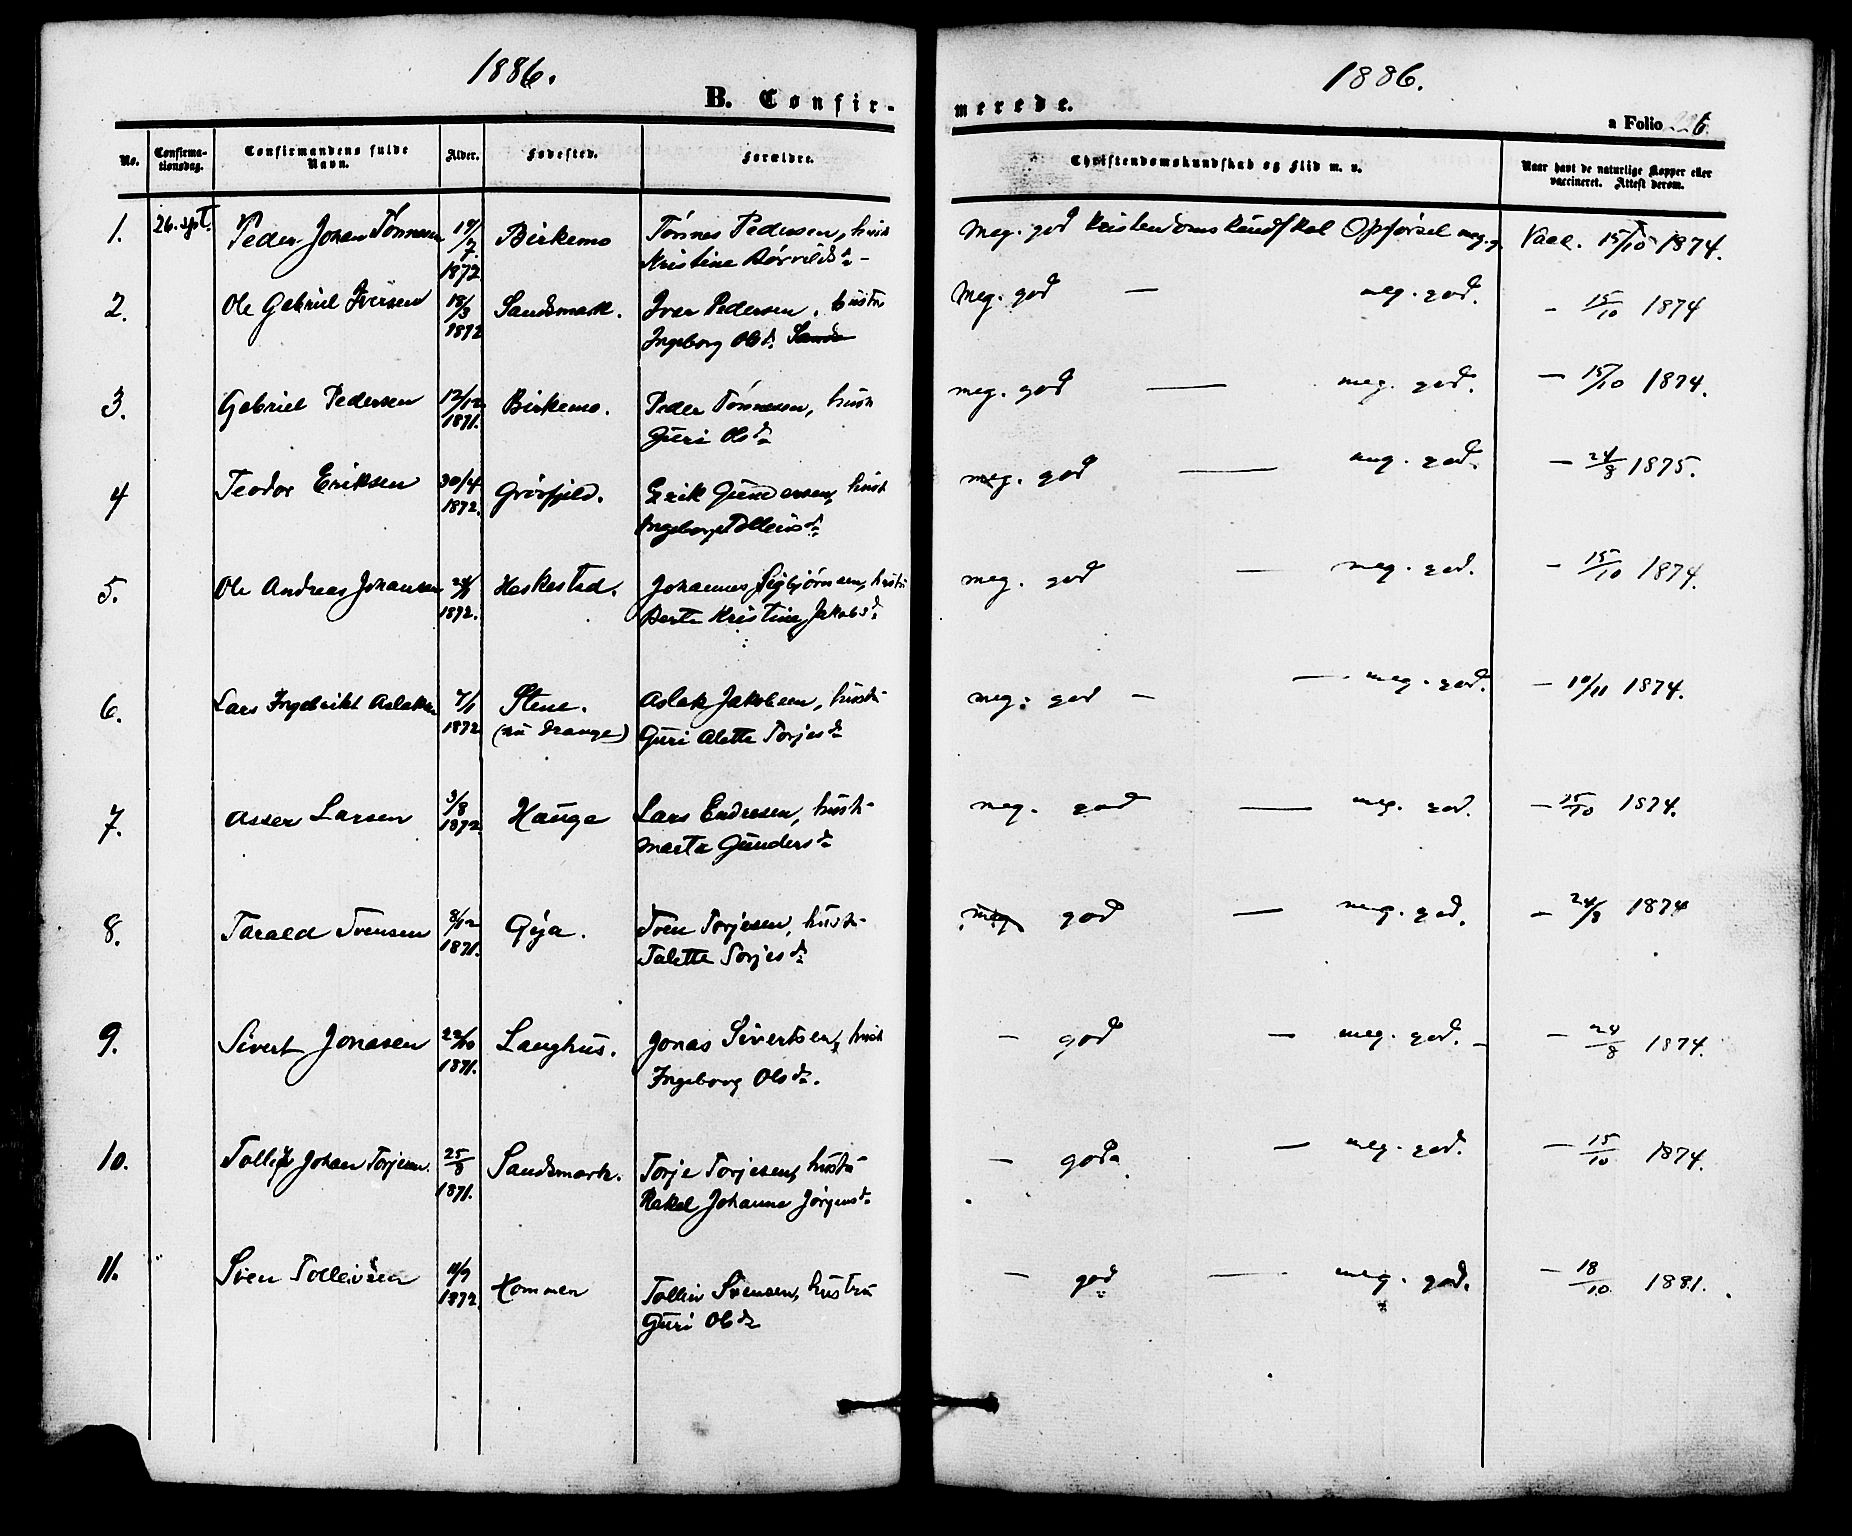 1886.
B. Confir-
No.
Confirma-
tionsdag.
Confirmandens fulde
Navn.
Alder.
Fødested.
Forældre.
1.
26. spt.
Peder Johan Tønnesen
19/7
1872
Birkemo
Tønnes Pedersen, hust
Kristine
2.
Ole Gabriel Iversen
18/3
1872
Sandsmark.
Iver Pedersen, hustru
Ingeborg Olsd.
3.
Gabriel Pedersen
12/12
1871.
Birkemo.
Peder Tønnesen, hust
Guri Olsd.
4
Teodor Eriksen
30/4
1872.
Grøsfjeld.
Erik Gundersen, hust
Ingeborg Tolleivsd.
5.
Ole Andreas Johansen
1872.
Heskestad.
Johannes Sigbjørnsen, hustru
Berte Kristine Jakobsd.
6.
Lars Ingebrikt Aslaksen
7/1
1872
Stene.
(nu Drange)
Aslak Jakobsen, hustr
Guri Alette Torjesd.
7.
Asser Larsen
3/8
1872.
Hauge
Lars Endresen, hustr
Marta Gundersd.
8.
Tarald Svensen
8/12
1871.
Gya.
Sven Torjesen, hustr
Talette Torjesd.
9.
Sivert Jonasen
22/10
1871.
Langhus.
Jonas Sivertsen, hust
Ingeborg Olsd.
10.
Tollef Johan Torjesen.
25/8
1871.
Sandsmark.
Torje Torjesen, hustru
Rakel Johanne Jørgensd.
11.
Sven Tolleivsen
11/9
1872.
Hommen
Tolleiv Svensen, hustru
Guri Olsd.
1886.
merede.
a Folio 226.
Christendomskundskab og Flid m. v.
Naar havt de naturlige Kopper eller
vaccineret. Attest derom.
Meg. god Kristendomskundskab Opførsel meg. g Vacc. 15/10 1874.
Meg. god — meg. god. - 15/10 1874
meg. god — meg. god. — 15/10 1874.
meg. god — meg. god. — 24/8 1875.
meg. god — meg. god. - 15/10 1874.
meg. god — — meg. god. — 10/11 1874.
meg. god — meg. god. — 15/10 1874.
meg god — meg. god. — 24/8 1874
- god — meg. god. - — 24/8 1874.
- god. — meg. god. — 15/10 1874.
- god — meg. god. — 18/10 1881.